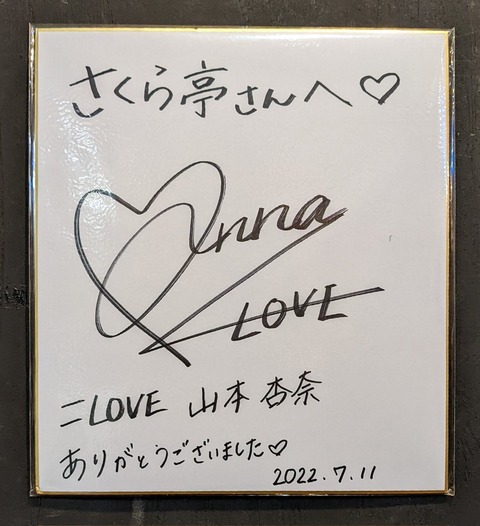 さくら亭さんへ♡
Anna
LOVE
=LOVE 山本 杏奈
ありがとうございました♡
2022.7.11